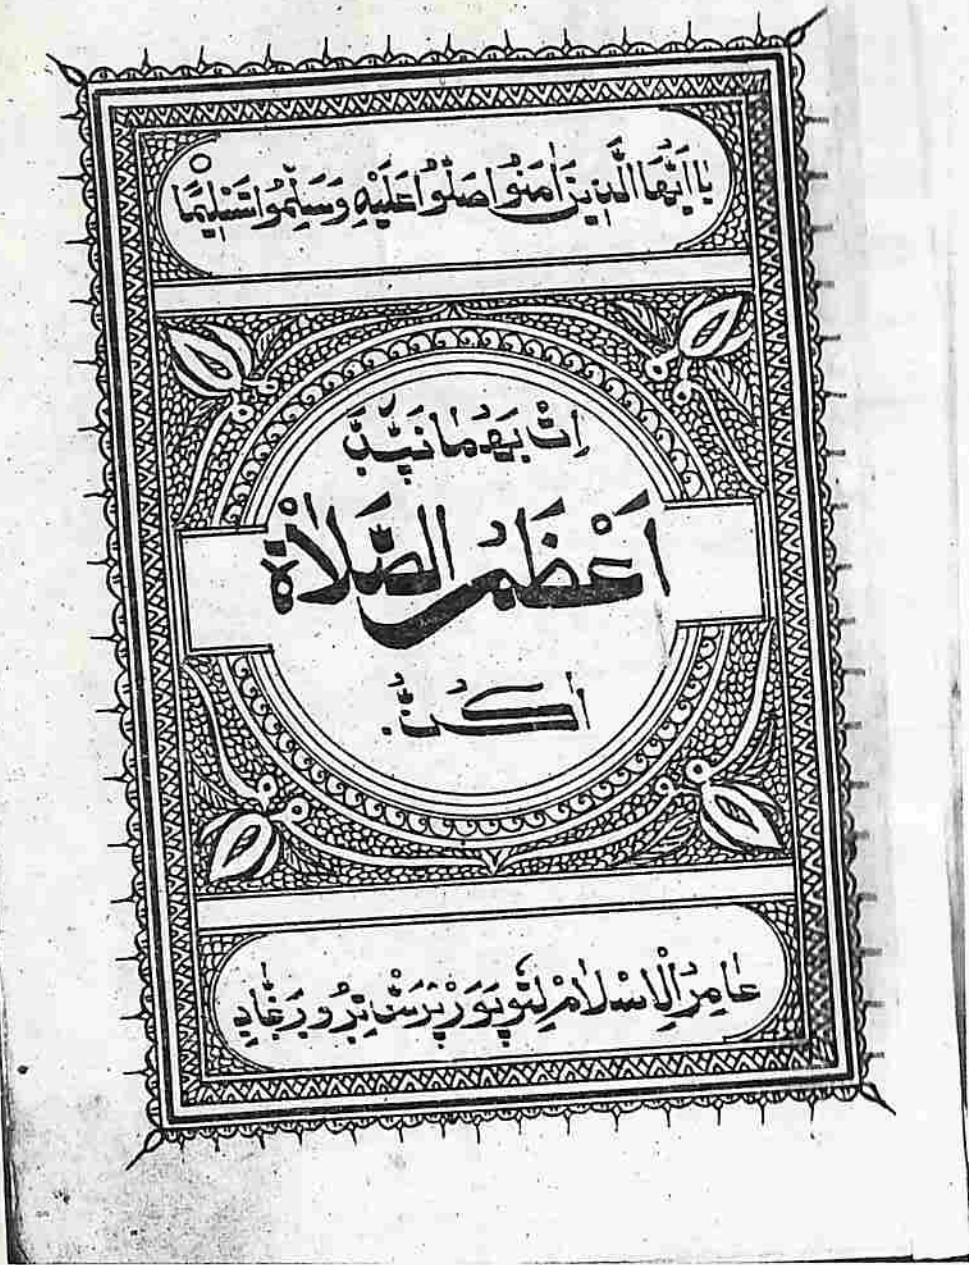 يٰاَيُّهَا الَّذِينَ اٰمَنُوا صَلُّوا عَلَيْهِ وَسَلِّمُوا تَسْلِيْمًا
اِتْ بَهُمٰانَپّٻَّ
اَعْظَمُ الصَّلَاةْ
اٰكُنُّ.
عٰامِرُالْاِسْلَامْ لِتّوپَوَرْپْرَسّْ